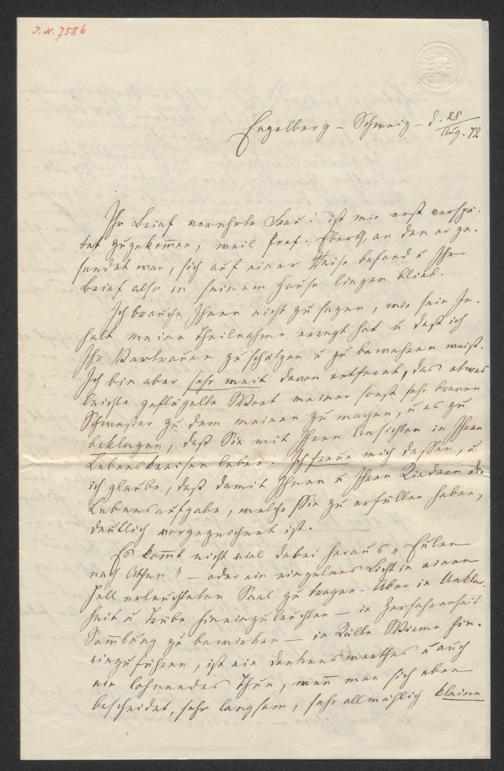 J. N. 7586
Engelberg – Schweiz – d. 28/Aug. 72
Ihr Brief verehrte Frau! ist mir erst verspä-
tet zugekommen, weil Prof. Eberth, an den er ge-
sendet war, sich auf einer Reise befand u Ihr
Brief also in seinem Hause liegen blieb.
Ich brauche Ihnen nicht zu sagen, wie sein In-
halt meine Theilnahme erregt hat u daß ich
Ihr Vertrauen zu schätzen u zu bewahren weiß.
Ich bin aber sehr weit davon entfernt, das etwas
leichte geflügelte Wort meiner sonst sehr braven
Schwester zu dem meinen zu machen, u es zu
beklagen, daß Sie mit Ihren Ansichten in Ihren
Lebenskreisen leben. Ich freue mich dessen, u
ich glaube, daß damit Ihnen u Ihren Kindern die
Lebensaufgabe, welche Sie zu erfüllen haben,
deutlich vorgezeichnet ist.
Es kommt nicht viel dabei heraus „Eulen
nach Athen" – oder ein einzelnes Licht in einen
hell erleuchteten Saal zu tragen. Aber in Unklar-
heit u Trübe hineinzuleuchten – in Zerfahrenheit
Sammlung zu bewirken – in Kälte Wärme hin-
einzuführen, ist ein dankenswerthes u auch
ein lohnendes Thun, wenn man sich eben
bescheidet, sehr langsam, sehr allmählich kleine